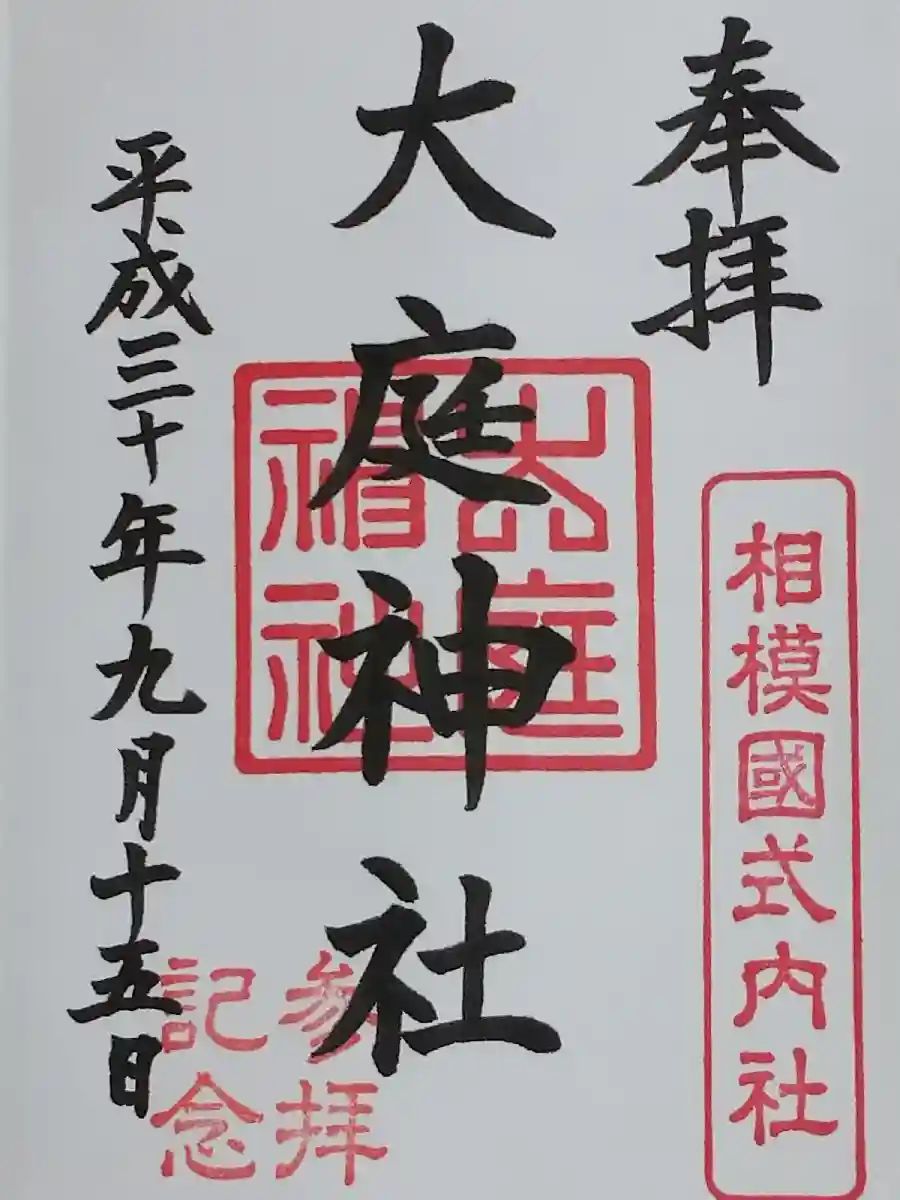 奉拝
相模國式内社
大庭神社
大庭
神社
参拝
記念
平成三十年九月十五日